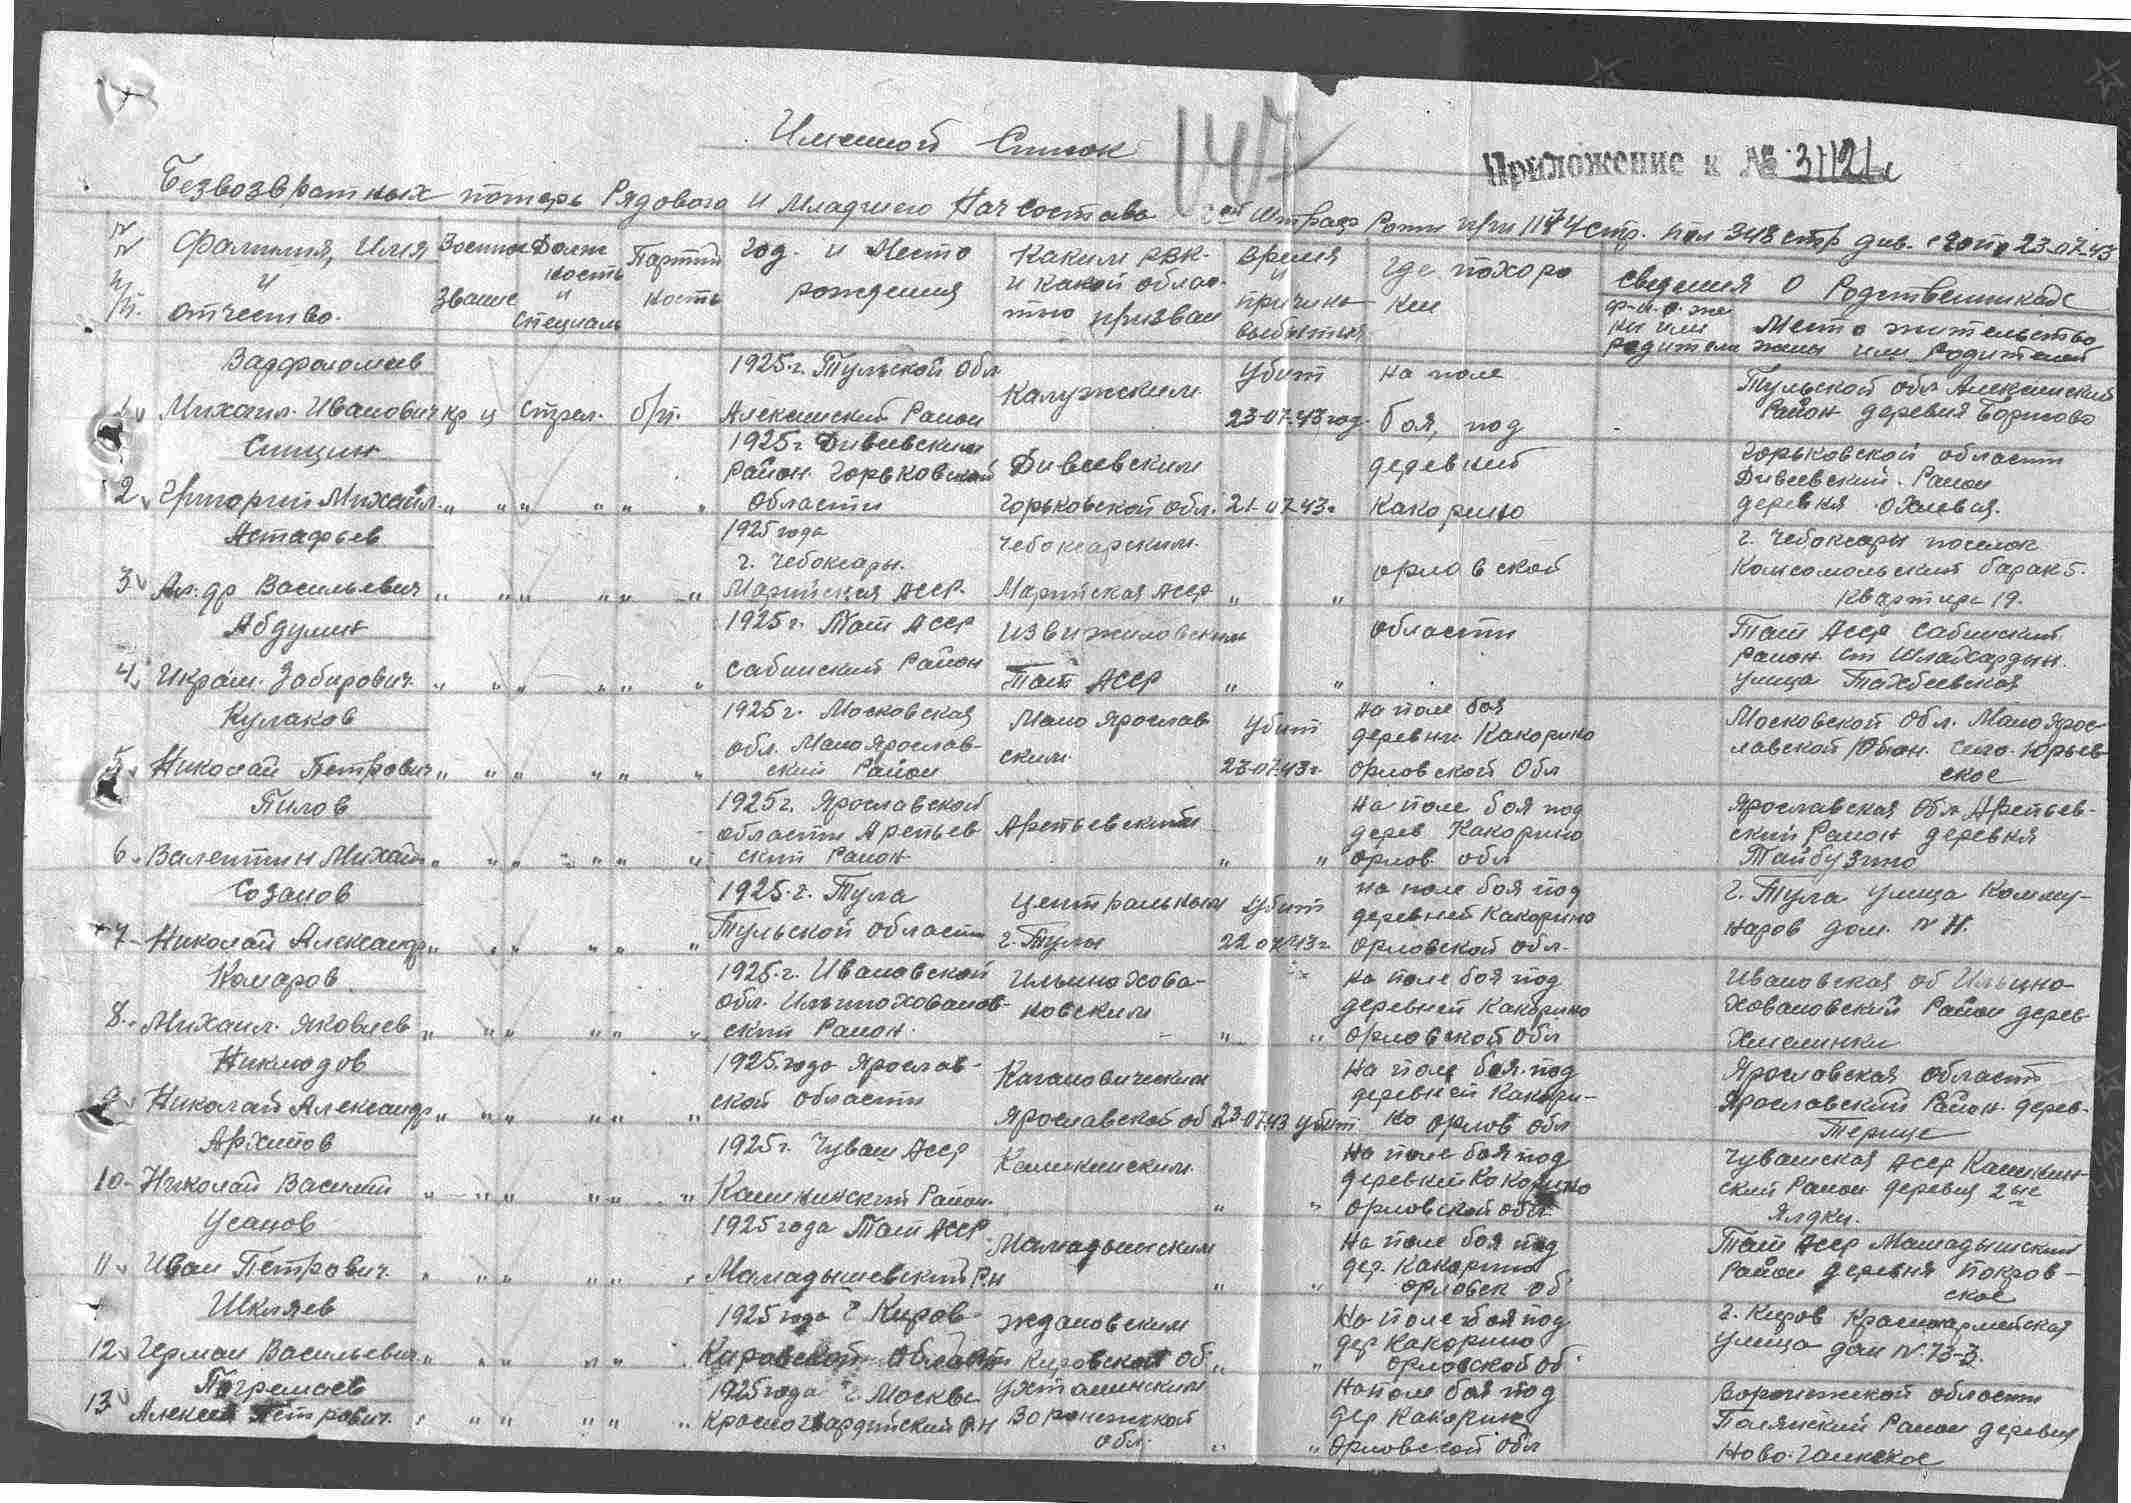 Именной Список
147
Приложение к № 31121с
Безвозвратных потерь Рядового и младшего Нач состава штраф Роты при 1174 стр. пол 348 стр див. с по 23.07.43
№ п/п. Фамилия, Имя и отчество. Военное звание Долж ность и специаль Партий ность год. и Место рождения Каким РВК. и какой облас- тью призван Время и причина выбытия где похоро нен Сведения о Родственниках
ф-и-о. же ны или родителя Место жительство жены или родителей
1 Варфоломеев Михаил Иванович кр-ц стрел. б/п. 1925 г. Тульской обл Алексинский Район Калужским Убит 23-07-43 год. на поле боя, под Тульской обл Алексинский Район деревня Борисово
2 Синцин Григорий Михайл. " " " " " " 1925 г Дивеевский район Горьковской области Дивеевским Горьковской обл. 21-07-43г деревней Какорино Горьковской области Дивеевский Район деревня
3 Астафьев Ал-др Васильевич " " " " " " 1925 года г. Чебоксары. Марийская АССР. Чебоксарским Марийская АССР " " орловской г. Чебоксары поселок Комсомольский барак 5. Квартира 19.
4 Абдулин Икрам Забирович " " " " " " 1925 г. Тат АССР Сабинский Район Тат АССР " " области Тат АССР Сабинский район улица
5 Кулаков Николай Петрович " " " " " " 1925 г. Московская обл. Малоярослав- ский Район Мало Ярослав ским Убит 23-07-43г. на поле боя деревни Какорино Орловской Обл Московской Обл. Мало Ярос- лавской Район. село Юрьев- ское
6. Пилов Валентин Михайл " " " " " " 1925 г. Ярославской области Арефьев ский Район Арефьевский " " На поле боя под дерев Какорино орлов обл Ярославская Обл Арефьев- ский Район деревня
7- Созанов Николай Александр " " " " " " 1925 г. Тула Тульской области Центральным г. Тулы Убит 22.07.43г. на поле боя под деревней Какорино Орловской обл. г. Тула улица Комму- наров дом. №
8. Комаров Михаил Яковлев " " " " " " 1925 г. Ивановской обл. Ильинохованов- ский Район. Ильинохова- новским " " На поле боя под деревней Какорино орловской обл Ивановская об Ильино- Ховановский Район дерев Хмелинки
9 Николай Александр " " " " " " 1925 года Ярослав- ской области Кагановическим Ярославской об 23-07-43 убит на поле боя под деревней Какори- но орлов обл Ярославская область Ярославский Район дерев.
10- Архипов Николай Василий " " " " " " 1925 г. Чуваш АССР Район " " На поле боя под деревней Какорино Орловской обл. Чувашская АССР ский Район деревня 2ые Ялдки.
11 Усанов Иван Петрович. " " " " " " 1925 года Тат АССР. Мамадышевский Р-н Мамадышским " " На поле боя под дер. Какорино орловск об Тат АССР Мамадышский Район деревня Покров- ское
12 Шкляев Герман Васильевич " " " " " " 1925 года г Киров Кировской области Ждановским Кировской об. " " На поле боя под дер Какорино орловской об г. Киров Красноармейская улица дом № 73-3.
13 Алексей Петрович. " " " " " " 1925 года г. Москвы Красногвардейский Р-Н Воронежской обл. " " На поле боя под дер Какорино Орловской обл Воронежской области Район деревня